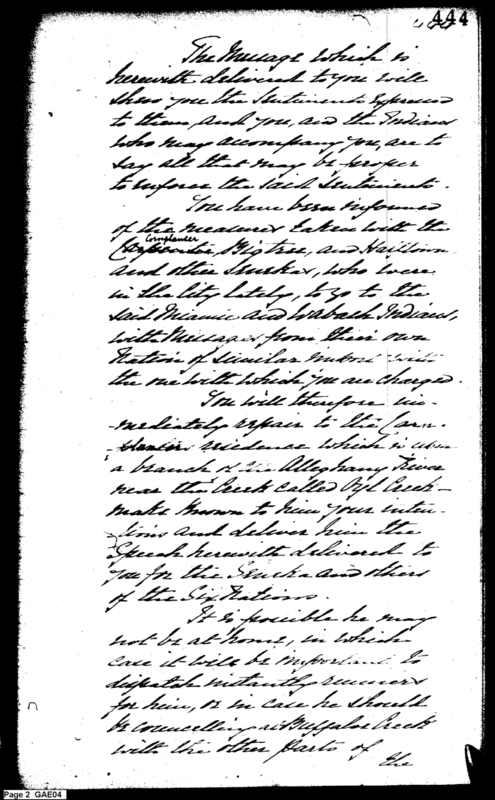 444
The Message which is
herewith delivered to you will
shew you the sentiments expressed
to them, and you, and the Indians
who may accompany you, are to
say all that may be proper
to enforce the said sentiments.
You have been informed
of the measures taken with the
Cornplanter
Big tree, and Halftown
and other Senekas, who were
in the City lately, to go to the
said Miami and Wabash Indians,
with Messages from their own
Nation of similar import with
the one with which you are charged.
You will therefore im-
-mediately repair to the Corn-
-planters residence which is upon
a branch of the Alleghany River
near the Creek called Oyl Creek-
make known to him your inten-
tions and deliver him the
Speech herewith delivered to
you for the Senekas and others
of the Six Nations.
It is possible he may
not be at home, in which
case it will be important to
dispatch instantly runners
for him, or in case he should
be councelling at Buffaloe Creek
with the other parts of
the
Page 2 GAE04